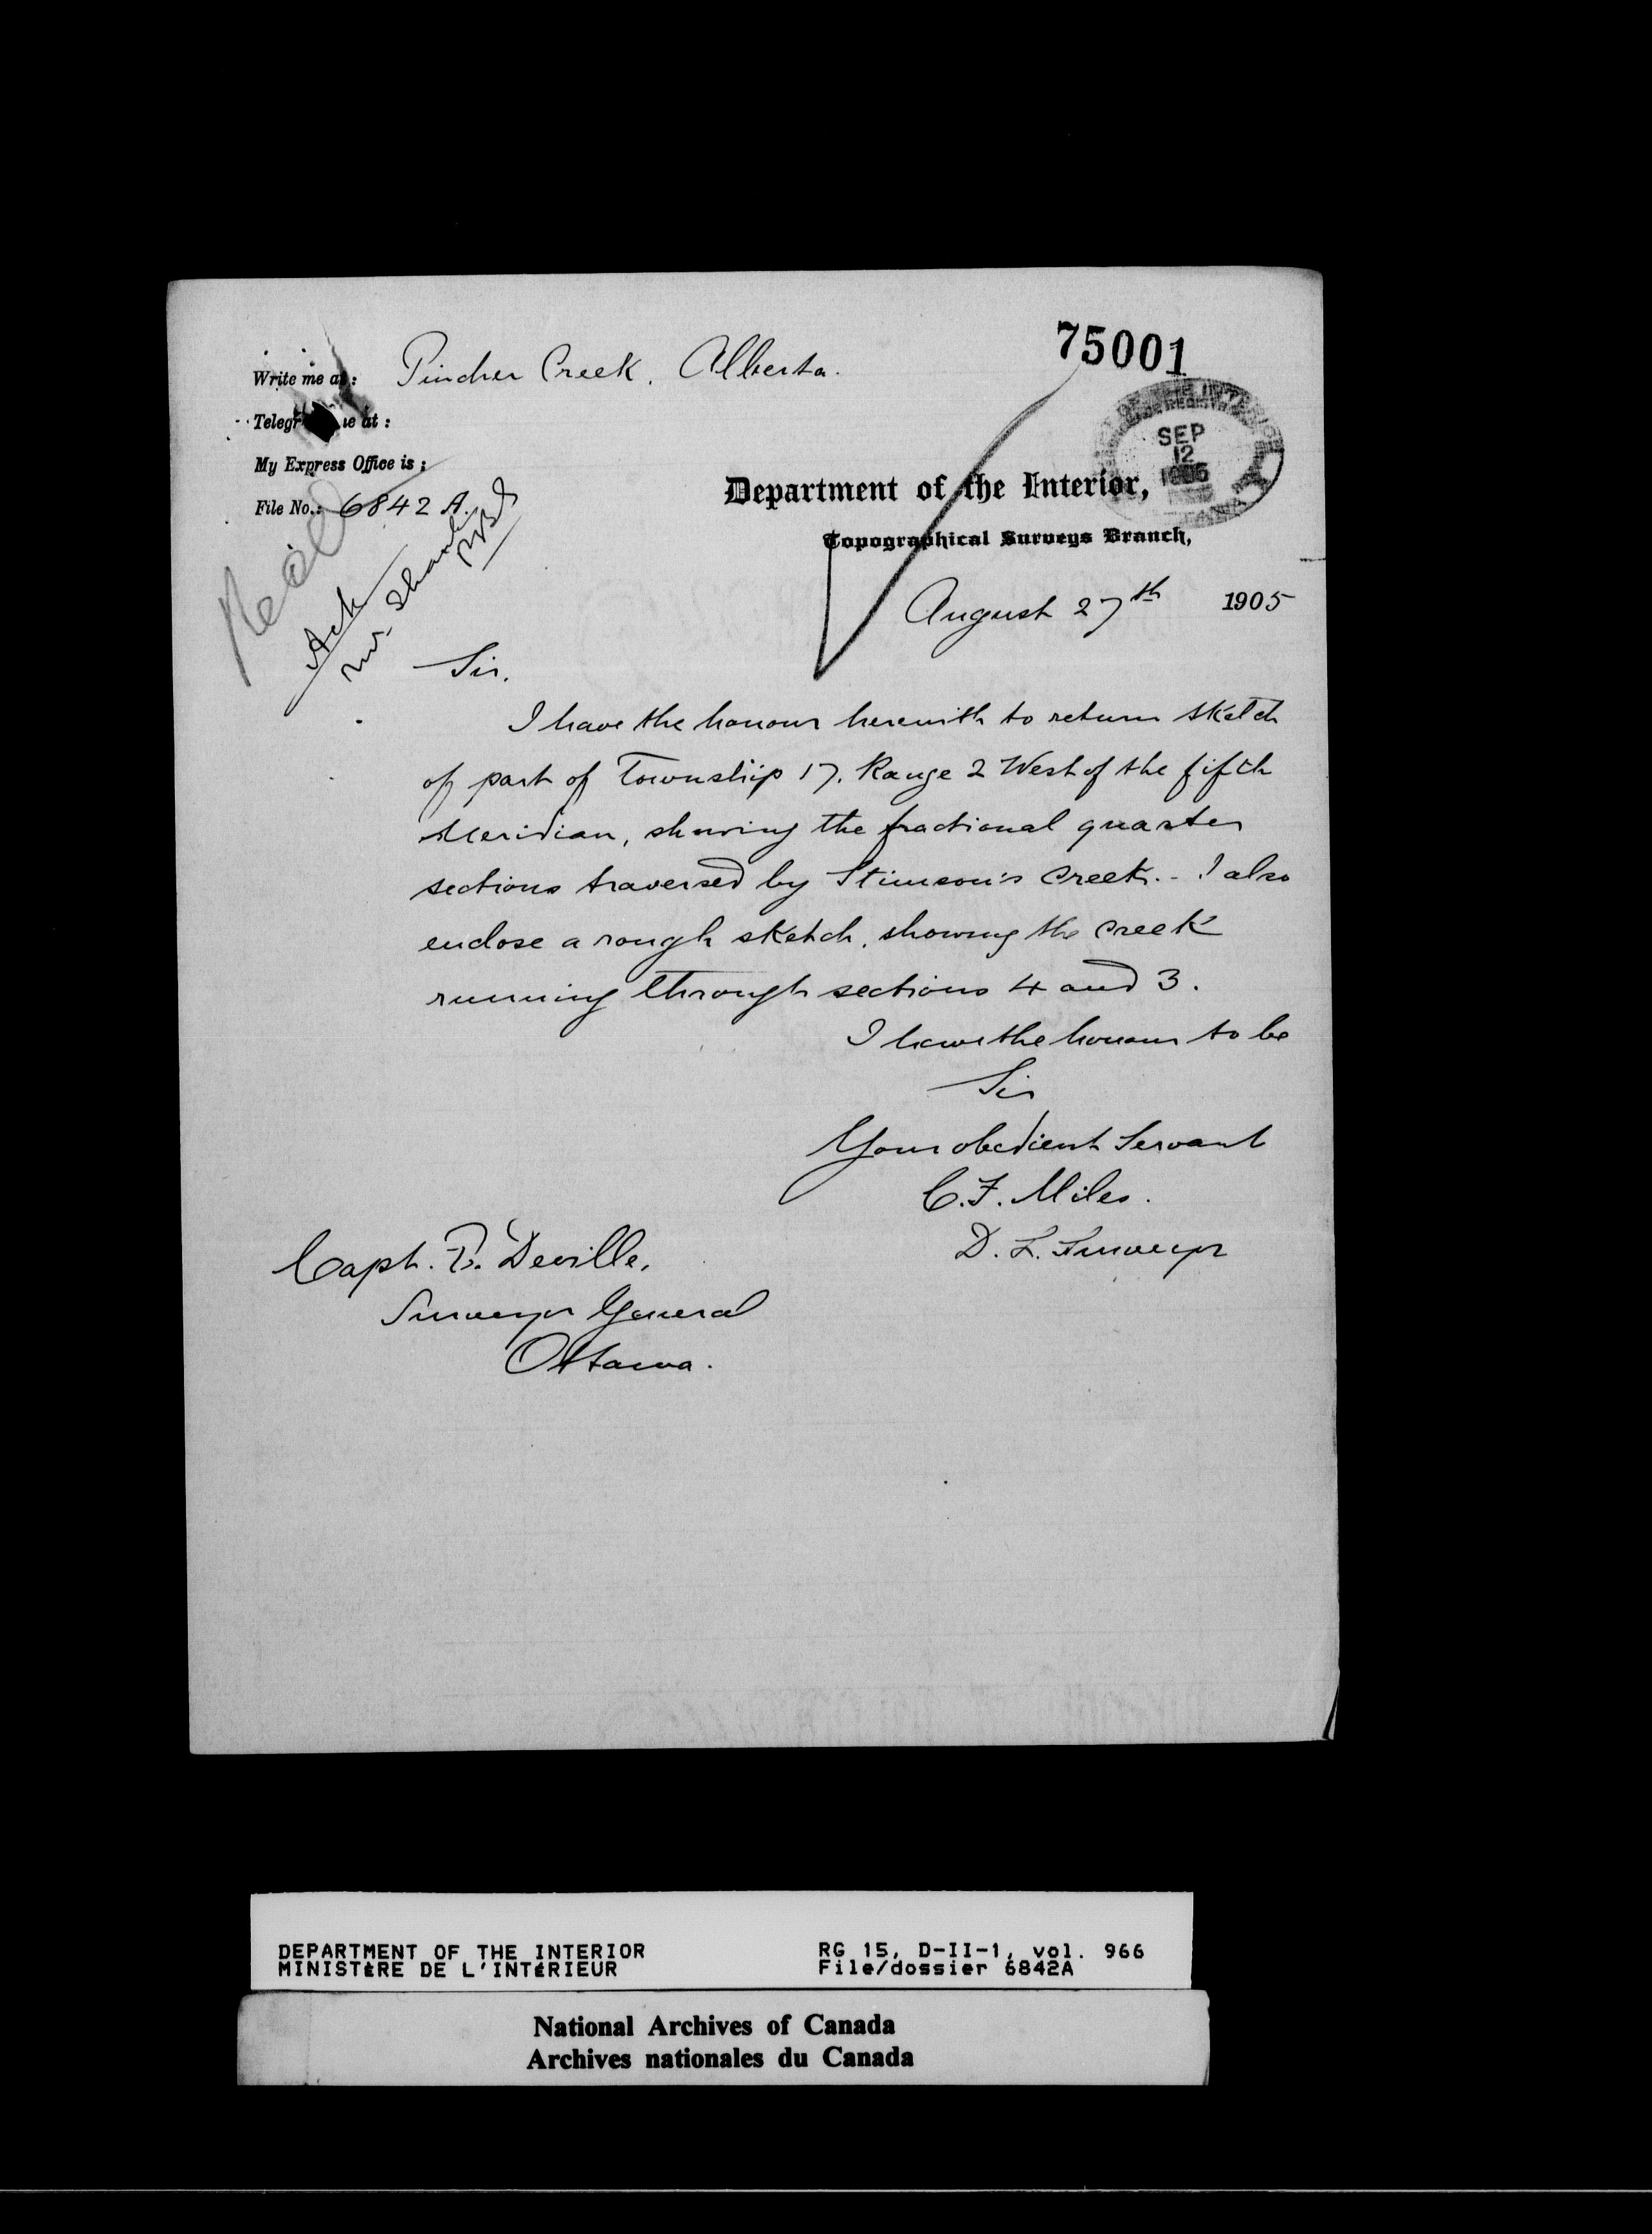 75001
Write me at: Pincher Creek, Alberta.
Telegr me at:
My Express Office is:
File No.: 6842 A.
SEP
12
1905
Department of the Interior,
Topographical Surveys Branch,
August 27th 1905
Rec'd
Ack
Mr. Shanly
Sir.
I have the honour herewith to return sketch
of part of Township 17. Range 2 West of the fifth
Meridian, showing the fractional quarter
sections traversed by Stimson's Creek. - I also
enclose a rough sketch, showing the creek
running through sections 4 and 3.
I have the honour to be
Sir
Your obedient Servant
C.F. Miles.
D. L. Surveyor
Capt. E. Deville,
Surveyor General
Ottawa.
DEPARTMENT OF THE INTERIOR
MINISTÈRE DE L'INTÉRIEUR
RG 15, D-II-1, vol. 966
File/dossier 6842A
National Archives of Canada
Archives nationales du Canada